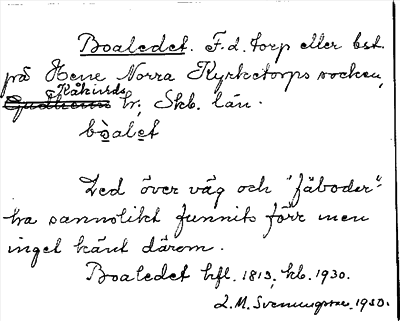 Boaledet. F.d. torp eller bst.
på Hene Norra Kyrketorps socken,
Kåkinds
Gudhems hr, Skb. län.
bòalet
Led över väg och "fäboder"
ha sannolikt funnits förr men
inget känt därom.
Boaledet hfl. 1813, kb. 1930.
L.M. Svenungsson. 1930.